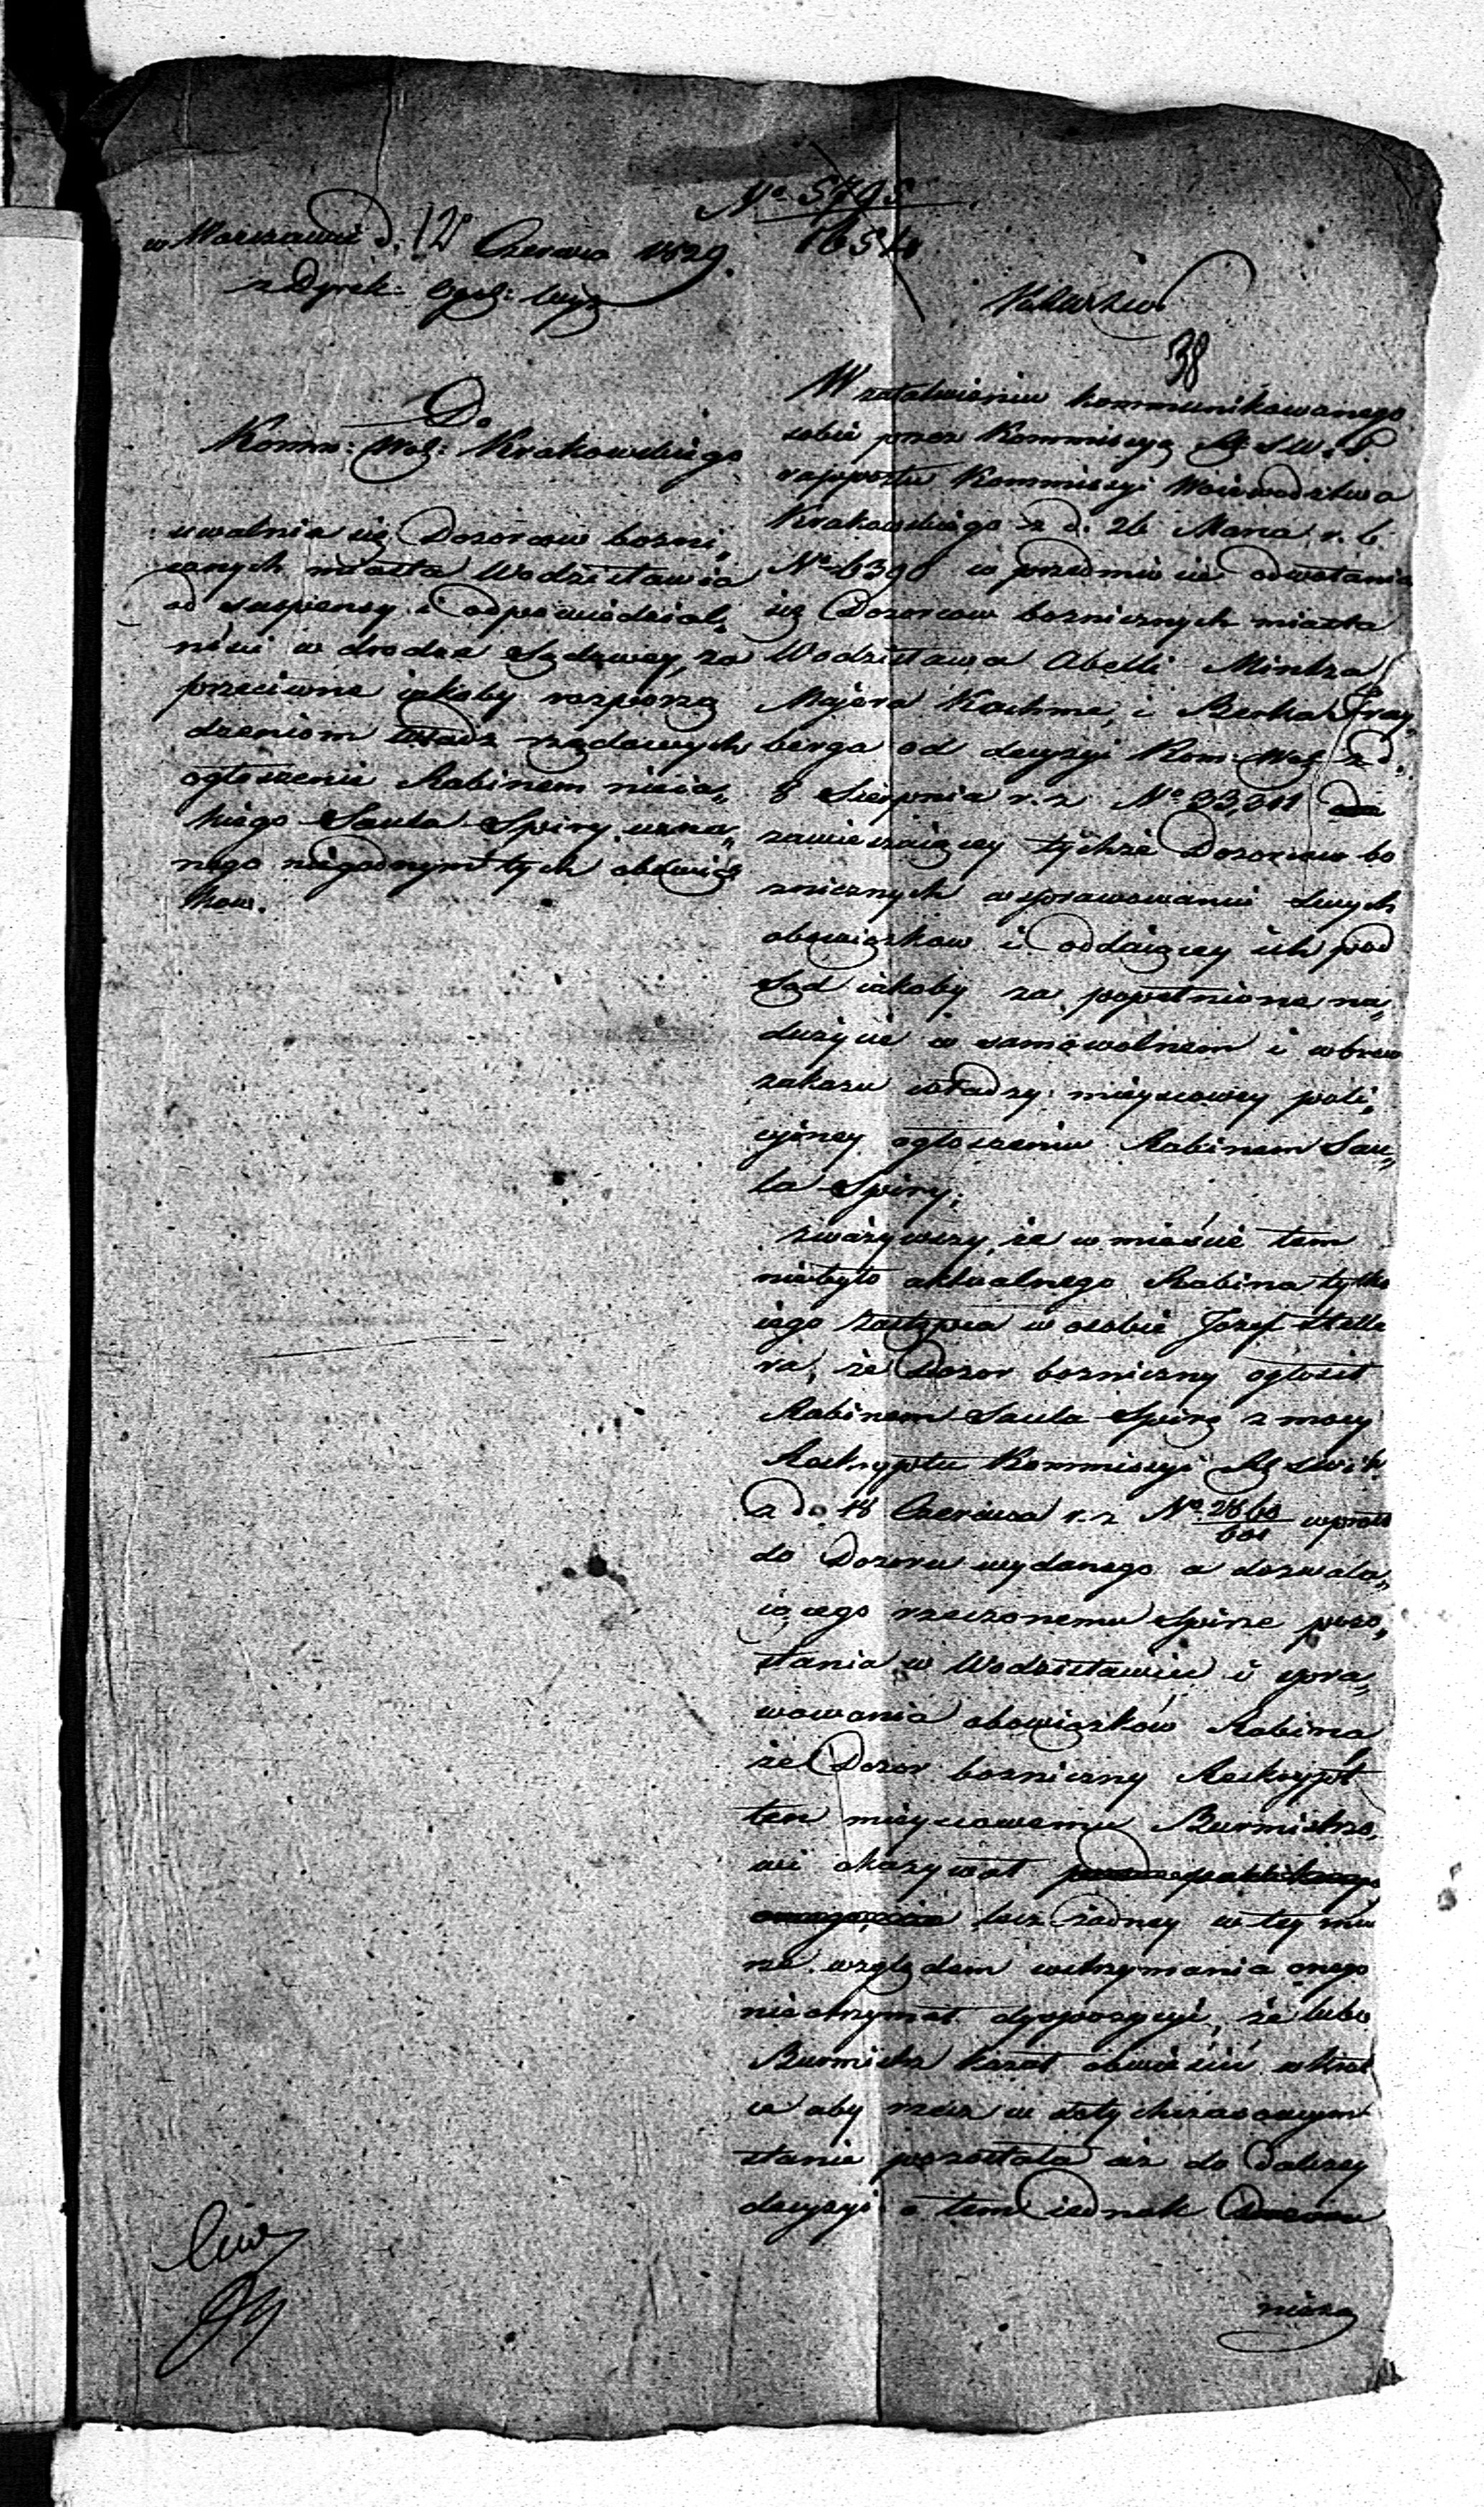 No 5795
1654
w Warszawie d. 12o Czerwca 1829.
z Dyrek: Ogol:
38
Do
Komm: Woj: Krakowskiego
uwalnia się Dozorcow bozni„
cznych miasta Wodzisławia
od suspensy i odpowiedzial„
ności w drodze Sądowey, za
przeciwne jakoby rozporzą
dzeniom władz rządowych
ogłoszenie Rabinem nieia„
kiego Saula Spiry uzna„
nego niegodnym tych obowiąz
kow.
W załatwieniu kommunikowanego
sobie przez Kommissyą R. S. W. i P.
rapportu Kommissyi Woiewodztwa
Krakowskiego z d. 26 Marca r. b.
No 26390 w przedmiocie odwołania
się Dozorcow boznicznych miasta
Wodzisława Abelli Mintza,
Majera Kochme, i Berka Fray„
berga od decyzyi Kom. Woj. z d.
8 Sierpnia r. z. No 33,301
zawieszaiącey tychże Dozorcow bo
znicznych w sprawowaniu swych
obowiązkow i oddaiącey ich pod
Sąd jakoby za popełnione na„
dużycie w samowolnem i wbrew
zakazu władzy mieyscowey poli„
cyiney ogłoszeniu Rabinem Sau„
la Spiry;
zważywszy, że w mieście tem
niebyło aktualnego Rabina tylko
iego zastępca w osobie Jozef
ra, że Dozor bozniczny ogłosił
Rabinem Saula Spirę z mocy
Reskryptu Kommissyi R. S. W. i P.
z d. 18 Czerwca r. z. No 2860/601 wprost
do Dozoru wydanego a dozwala„
iącego rzeczonemu Spirze pozo„
stania w Wodzisławiu i spra„
wowania obowiązków Rabina
że Dozor bozniczny Reskrypt
ten mieyscowemu Burmistrzo„
wi okazywał
lecz żadney w tey mie
rze względem wstrzymania onego
nieotrzymał dyspozycyi, że lubo
Burmistrz kazał obwieścić wkrot
ce aby rzecz w dotychczasowym
stanie pozostała aż do dalszey
decyzyi o tem iednak